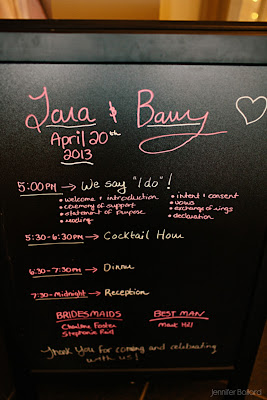 Tara & Barry
April 20th
2013
5:00PM → We say "I do"!
• welcome & introduction
• ceremony of support
• statement of purpose
• reading
• intent & consent
• vows
• exchange of rings
• declaration
5:30-6:30PM → Cocktail Hour
6:30-7:30PM → Dinner
7:30-Midnight → Reception
BRIDESMAIDS
Charlene Foster
Stephanie
BEST MAN
Mark Hill
Thank You for coming and celebrating
with us!
Jennifer Ballard